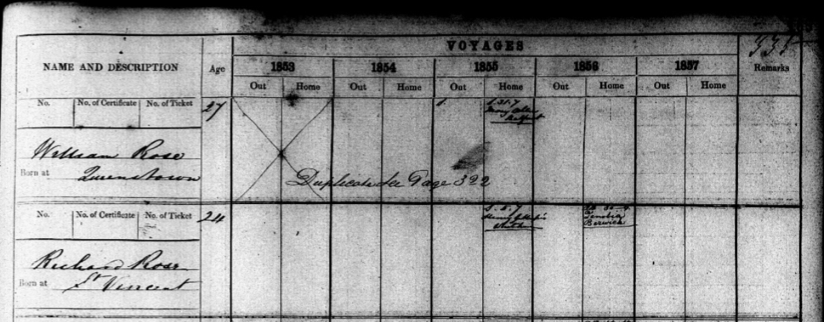 VOYAGES
NAME AND DESCRIPTION Age 1853 1854 1855 1856 1857 Remarks
Out Home Out Home Out Home Out Home Out Home
No. No. of Certificate No. of Ticket 27
William Rose
Born at Queenstown
Duplicate See Page 322
No. No. of Certificate No. of Ticket 24
Berwick
Richard Rose
Born at St Vincent